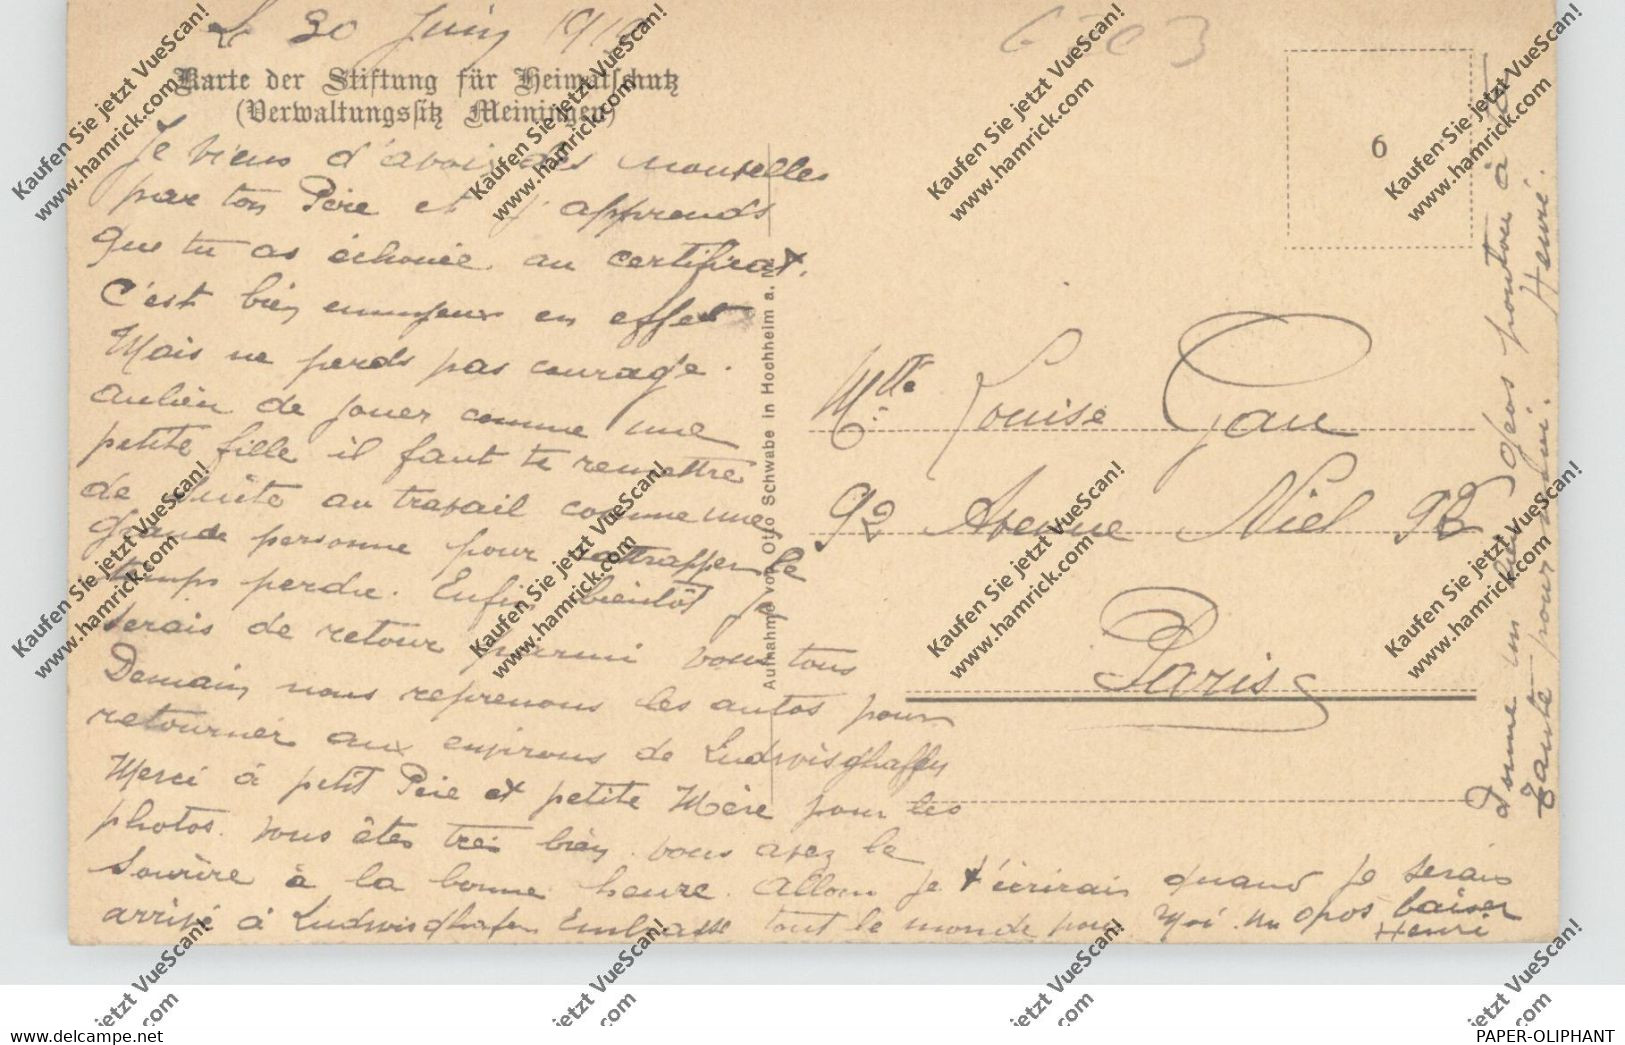 Le 30 Juin 191
Karte der Stiftung für Heimatschutz
(Verwaltungssitz Meiningen)
Je viens d'avoir des nouvelles
par ton Père et j'apprends
que tu as échouée au certificat.
C'est bien ennuyeux en effet
Mais ne perds pas courage.
aulieu de jouer comme une
petite fille il faut te remettre
de suite au travail comme une
grande personne pour rattrapper le
temps perdu. Enfin bientôt je
serais de retour parmi vous tous
Demain nous reprenons les autos pour
retourner aux environs de Ludwisghaffen
Merci à petit Père et petite Mère pour les
photos. vous êtes très bien. vous avez le
sourire à la bonne heure. Allons je t'écrirais quand je serais
arrivé à Ludwisghafen Embrasse tout le monde pour moi. un gros baiser
Henri
Aufnahme von Otto Schwabe in Hochheim a. M.
6
Mlle Louise Gau
92 Avenue Niel 92
Paris
Donne un gros à
Tante pour lui. Henri.
Kaufen Sie jetzt VueScan!
www.hamrick.com
www.delcampe.net
PAPER-OLIPHANT